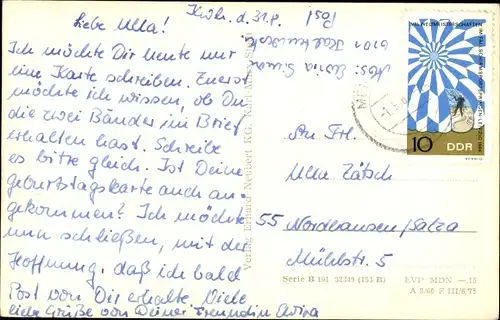 Kwhn. d. 31.8.
Liebe Ulla!
Ich möchte Dir heute nur
eine Karte schreiben. Zuerst
möchte ich wissen, ob Du
die zwei Bänder im Brief
erhalten hast. Schreibe
es bitte gleich. Ist Deine
Geburtstagskarte auch an-
gekommen? Ich möchte
nun schließen, mit der
Hoffnung, daß ich bald
Post von Dir erhalte. Viele
liebe Grüße von Deiner Freundin
Post
Abs:
6101
An Frl.
Ulla Zätsch
55 Nordhausen/Salza
Mühlstr. 5
Verlag Erhard Neubert KG, Karl-Marx-Stadt
Serie B 101 (153 B)
EVP MDN —.15
A 5/66 F III/6/75
VIII. WELTMEISTERSCHAFTEN
10 DDR